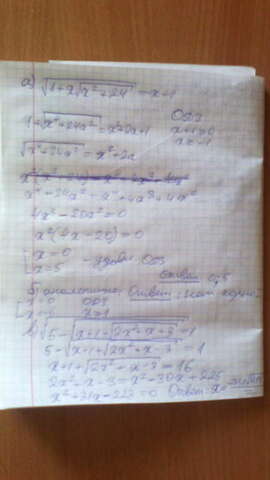 а) √(1+x√(x²+24)) = x+1
1+√(x⁴+24x²) = x²+2x+1 ОДЗ
x+1≥0
x≥-1
√(x⁴+24x²) = x²+2x
x⁴+24x² = x⁴+4x³+4x²
4x³-20x²=0
x²(4x-20)=0
[x=0
x=5 - удовл. ОДЗ
Ответ 0,5
б) аналогично. Ответ: нет корней
[x=0 ОДЗ
x=5 x≥1
в) √(5-√(x+1+√(2x²+x+3))) = 1
5-√(x+1+√(2x²+x-3)) = 1
x+1+√(2x²+x-3) = 16
2x²+x-3=x²-30x+225
x²+31x-228=0 Ответ: